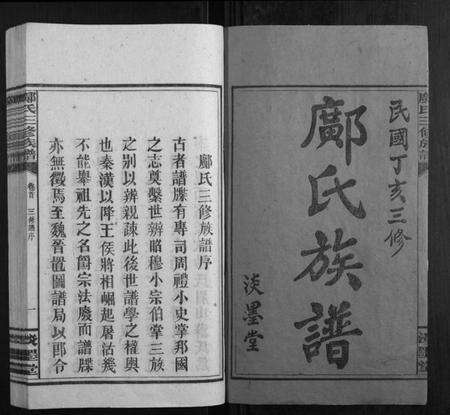 民國丁亥三修
鄺氏族譜
淡墨堂
鄺氏三修族譜序
古者譜牒有專司周禮小史掌邦國
之志奠繫世辨昭穆小宗伯掌三族
之別以辨親疎此後世譜學之權輿
也秦漢以降王侯將相崛起屠沽幾
不能舉祖先之名閥宗法廢而譜牒
亦無徵焉至魏晉置圖譜局以郎令
鄺氏三修族譜
卷首
三修譜序
一
淡墨堂